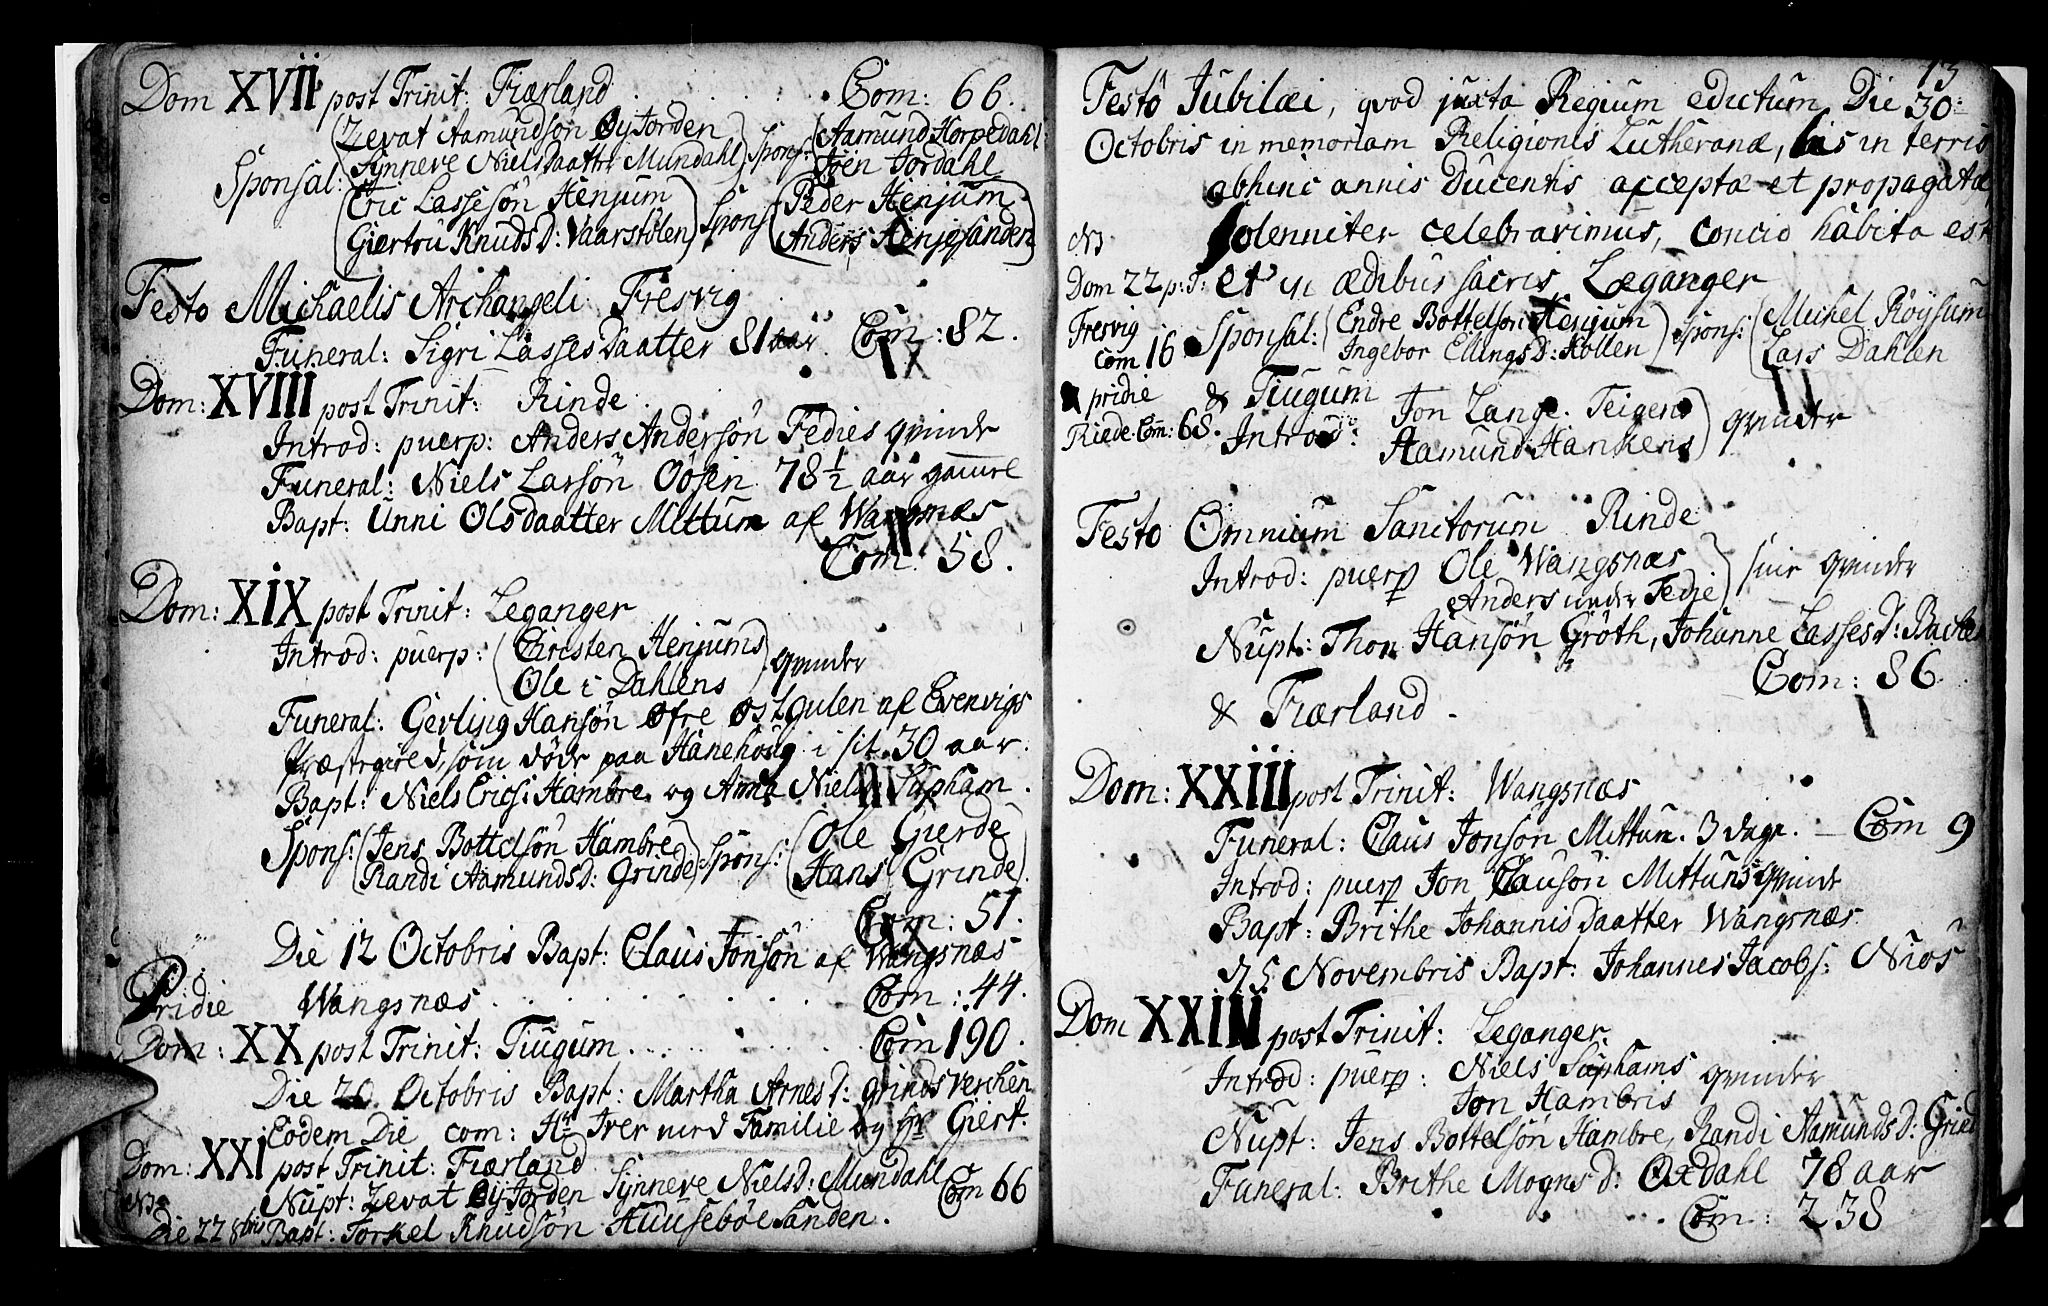 Dom XVII post Trinit: Fiærland . . . . Com: 66.
Sponsal: (Zevat Aamundson Øyjorden
Synneve Nielsdaatter Mundahl) Spons: (Aamund Horpedahl
Joen Jordahl
(Eric Lassesøn Henjum
Giertru Knudsd: Vaarstølen) Spons: (Peder Henjum
Anders Henjesanden)
Festo Michaelis Archangeli Fresvig
Funeral: Sigri Lasses Daatter 81 aar Com: 82.
Dom: XVIII post Trinit: Rinde
Introd: puerp: Anders Andersøn Fedies qvinde
Funeral: Niels Larsøn Oøsen 78½ aar gamle
Bapt: Unni Olsdaatter Mittum af Wangsnæs
Com: 58.
Dom: XIX post Trinit: Leganger
Introd: puerp: (Cirsten Henjums
Ole i Dahlens) qvinder
Funeral: Gevling Hansøn øfre Østgulen af Evenvigs
Præstegield, som døde paa Hanehoug i sit 30 aar.
Bapt: Niels Erics: Hambre og Anna Nielsd: Supham.
Spons: (Jens Bottelsøn Hambre
Randi Aamundsd: Grinde) Spons: (Ole Gierde
Hans Grinde)
Com: 51.
Die 12 Octobris Bapt: Claus Jonsøn af Wangsnæs
Pridie Wangsnæs . . . . Com: 44.
Dom: XX post Trinit: Tiugum . . . . Com 190.
Die 20 Octobris Bapt: Martha Arnesd: Grindsverchen
Eodem Die com: Hr Iver med Familie og hr Giert.
Dom: XXI post Trinit: Fiærland
Nupt: Zevat Øyjorden Synneve Nielsd: Mundahl Com 66
NB
Die 22 8bris Bapt: Torkel Knudsøn Huusebøesanden.
13
Festo Jubilæi, qvod juxta Regium edictum Die 30:
Octobris in memoriam Religionis Lutheranæ, his in terris
abhinc annis Ducentis acceptæ et propagatæ,
solenniter celebravimus, concio habita est
NB
Dom 22 p: T: et in ædibus sacris Leganger
Fresvig
Com 16 Sponsal: (Endre Bottelsøn Henjum
Ingebor Ellingsd: Hollen) Spons: (Michel Røysum
Lars Dahlen
pridie
Riede Com: 68. & Tiugum
Introd: Jon Lange Teigens
Aamund Hankens) qvinder
Festo Omnium Sanctorum Rinde
Introd: puerp Ole Wangsnæs
Anders under Fedie) sine qvinder
Nupt: Thor Hansøn Grøth, Johanne Lassesd: Backe
Com: 86
& Fiærland.
Dom: XXIII post Trinit: Wangsnæs
Funeral: Claus Jonsøn Mittun. 3 dage. — Com 9
Introd: puerp Jon Clausøn Mittuns qvinde
Bapt: Brithe Johannisdaatter Wangsnæs
d 5 Novembris Bapt: Johannes Jacobs: Nios
Dom XXIIII post Trinit: Leganger.
Introd: puerp: Niels Suphams
Jon Hambris qvinder
Nupt: Jens Bottelsøn Hambre, Randi Aamundsd: Gried
Funeral: Brithe Mognsd: Oxdahl 78 aar
Com: 238